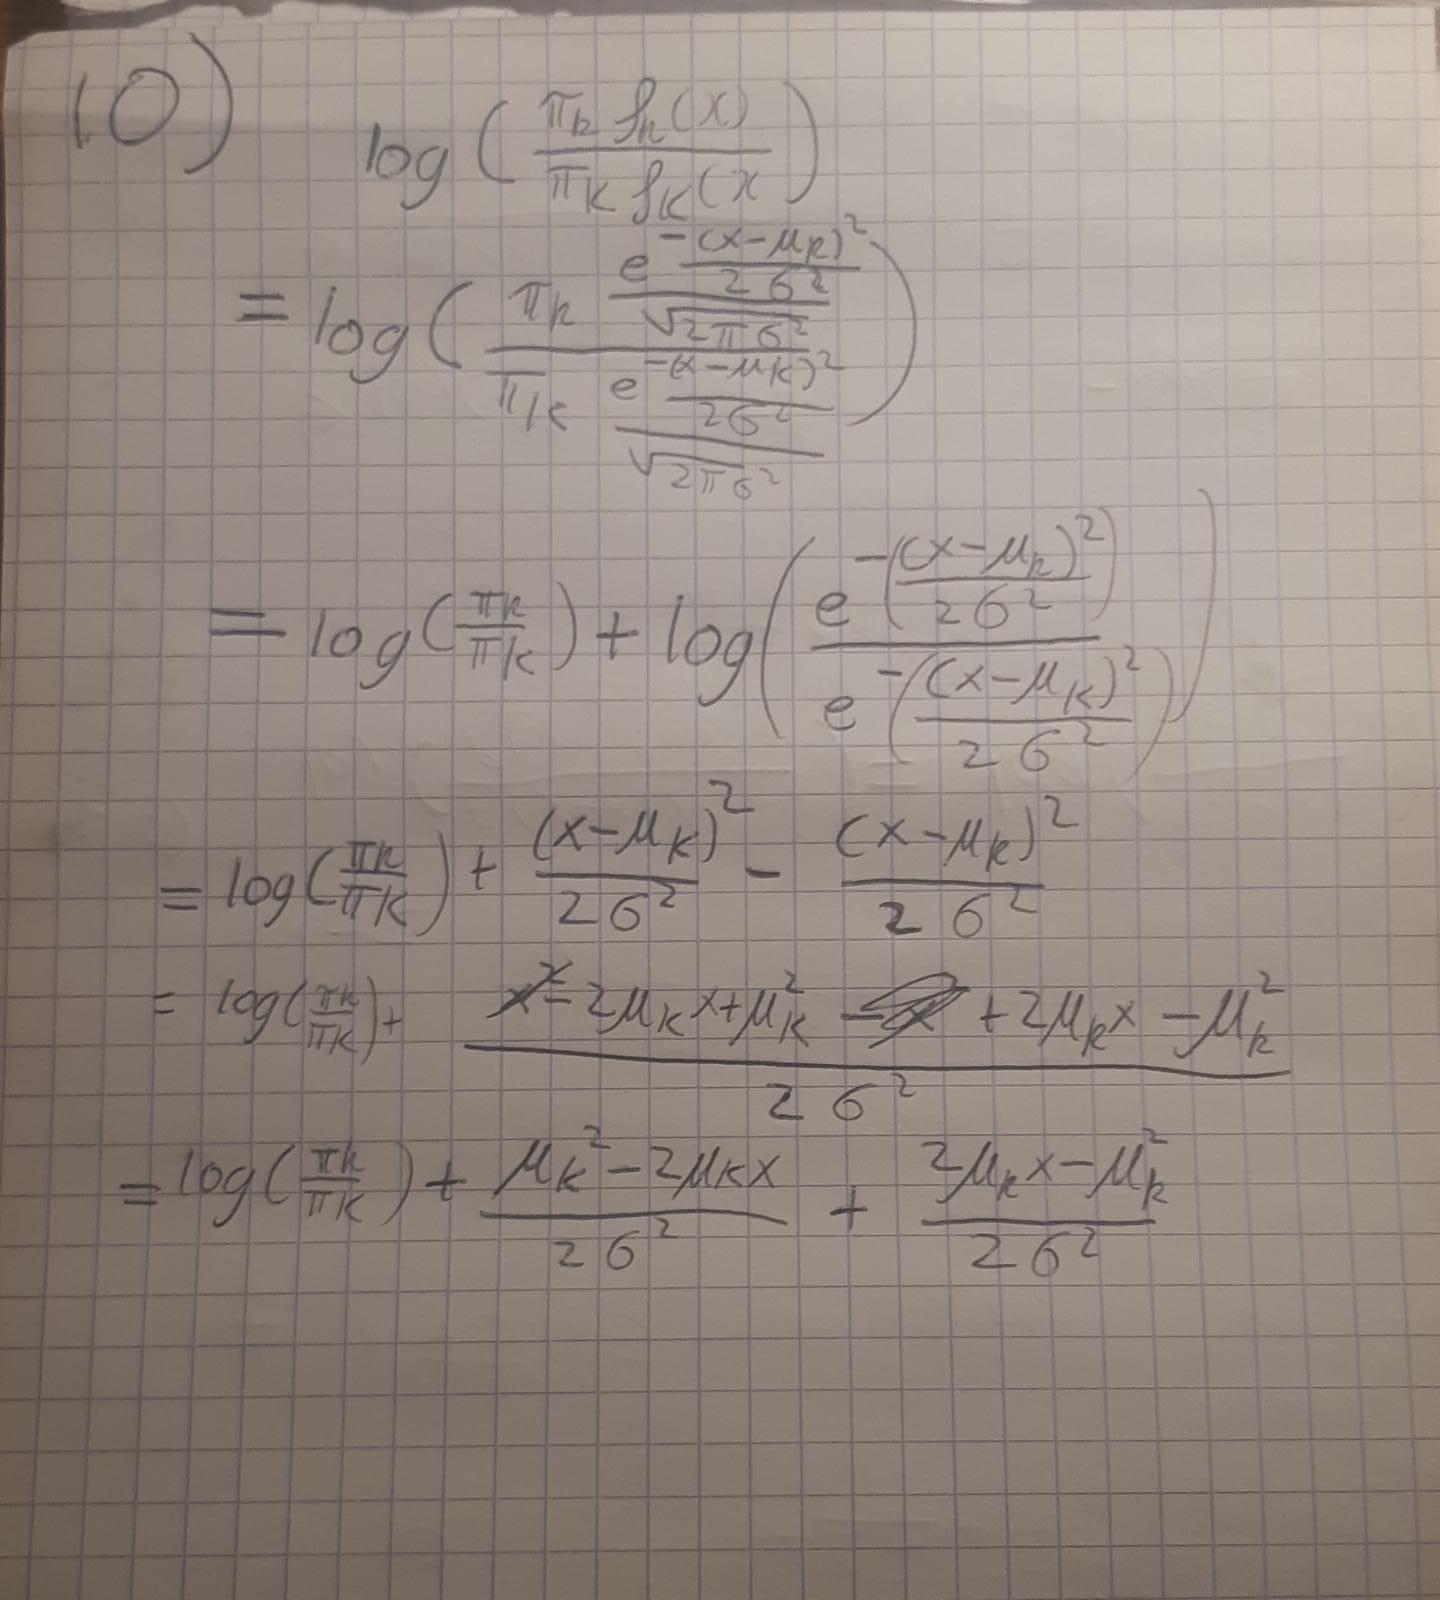 10)
log(π_k f_k(x) / π_K f_K(x)
= log(π_k e^{-(x-μ_k)²/2σ²}/√2πσ² / π_K e^{-(x-μ_K)²/2σ²}/√2πσ²)
= log(π_k/π_K) + log(e^{-((x-μ_k)²/2σ²)} / e^{-((x-μ_K)²/2σ²)})
= log(π_k/π_K) + (x-μ_K)²/2σ² - (x-μ_k)²/2σ²
= log(π_k/π_K) + x² - 2μ_K x + μ_K² - x² + 2μ_k x - μ_k² / 2σ²
= log(π_k/π_K) + μ_K² - 2μ_K x / 2σ² + 2μ_k x - μ_k² / 2σ²